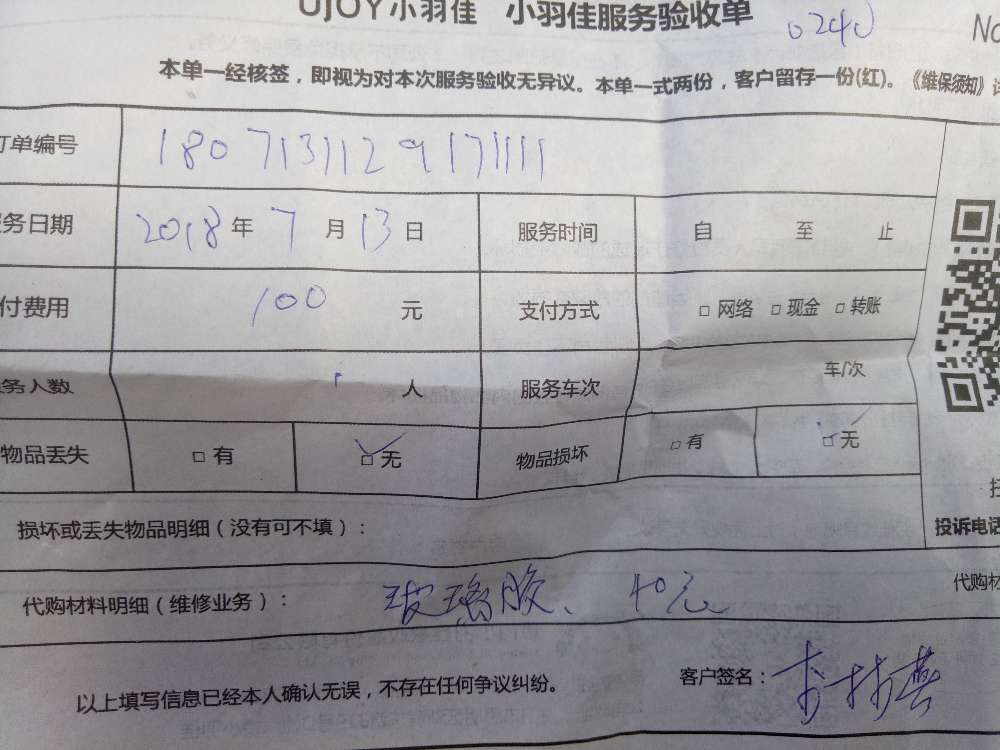 UJOY小羽佳 小羽佳服务验收单 0240 No
本单一经核签，即视为对本次服务验收无异议。本单一式两份，客户留存一份(红)。《维保须知》详
订单编号 1807131129171111
服务日期 2018年7月13日 服务时间 自 至 止
付费用 100 元 支付方式 □网络 □现金 □转账
务人数 1 人 服务车次 车/次
物品丢失 □有 ☑无 物品损坏 □有 ☑无
损坏或丢失物品明细（没有可不填）：
投诉电话
代购材料明细（维修业务）： 玻璃胶、40元 代购材
以上填写信息已经本人确认无误，不存在任何争议纠纷。 客户签名：